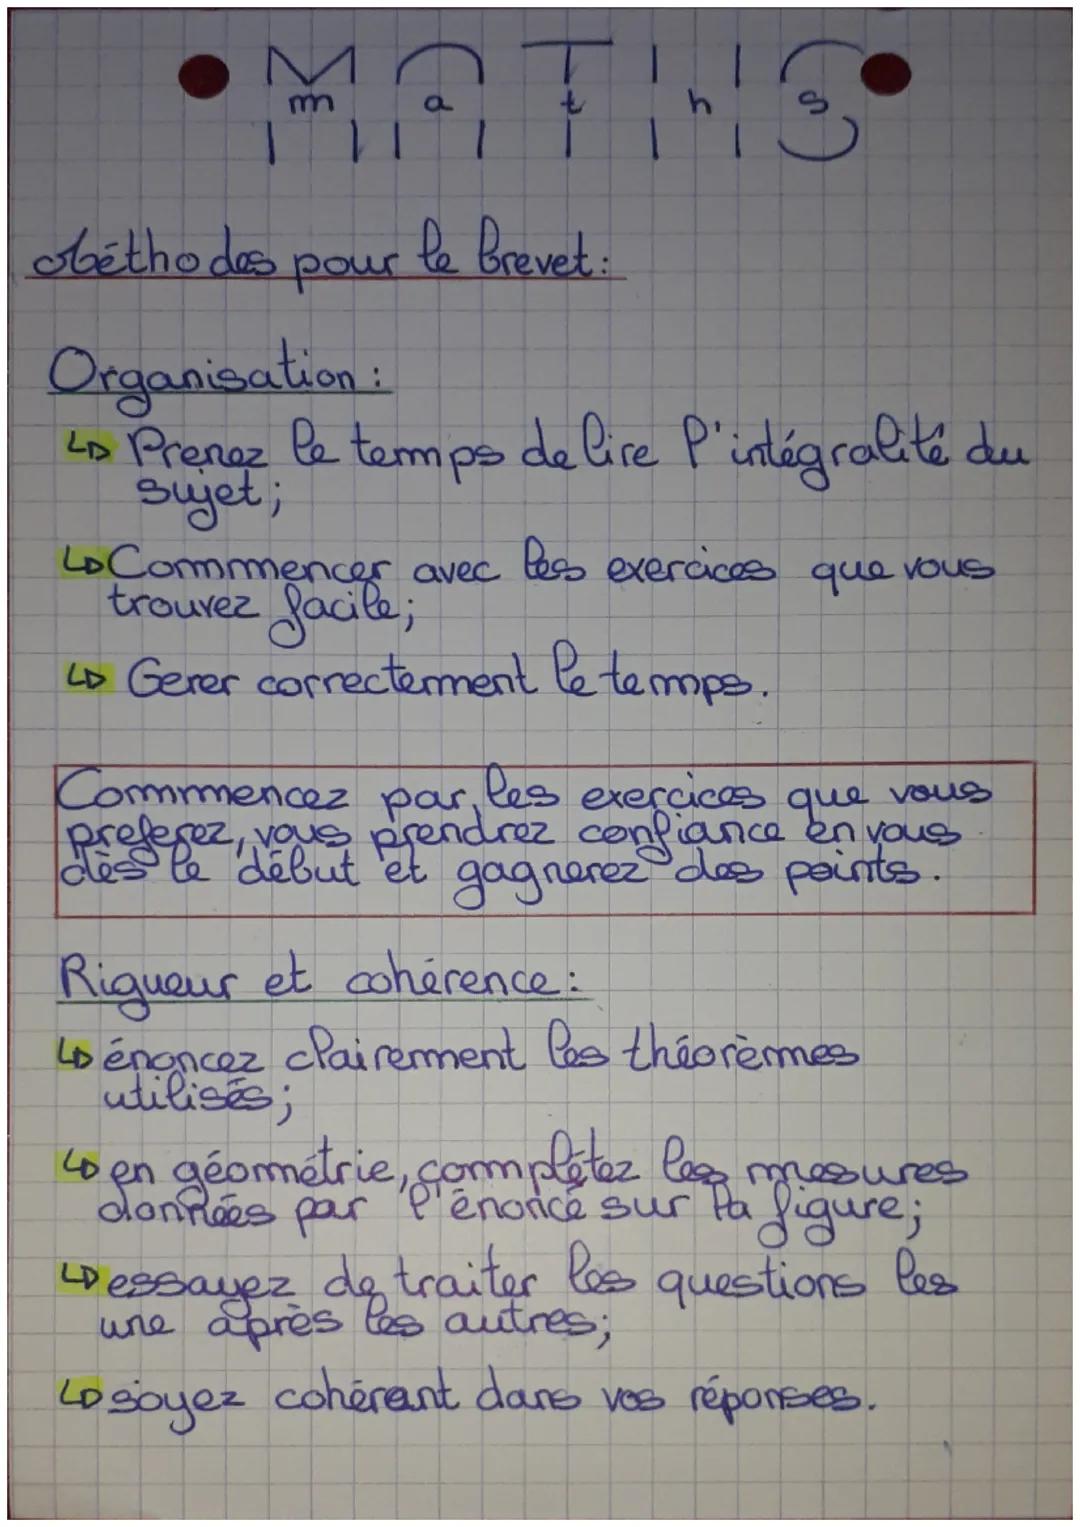 MATHS
m a t h s
Méthodes pour le brevet:
Organisation:
↳ Prenez le temps de lire l'intégralité du
sujet;
↳ Commmencer avec les exercices que vous
trouvez facile;
↳ Gerer correctement le temps.
Commmencez par les exercices que vous
preferez, vous prendrez confiance en vous
dès le début et gagnerez des points.
Rigueur et cohérence:
↳ énoncez clairement les théorèmes
utilisés;
↳ en géométrie, complétez les mesures
données par l'énoncé sur la figure;
↳ essayez de traiter les questions les
une après les autres;
↳ soyez cohérent dans vos réponses.